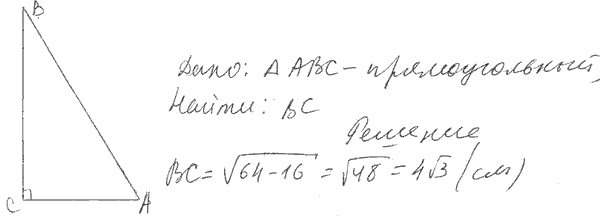 B
Дано: Δ ABC - прямоугольный,
Найти: BC
Решение
BC = √64-16 = √48 = 4√3 (см)
C
A